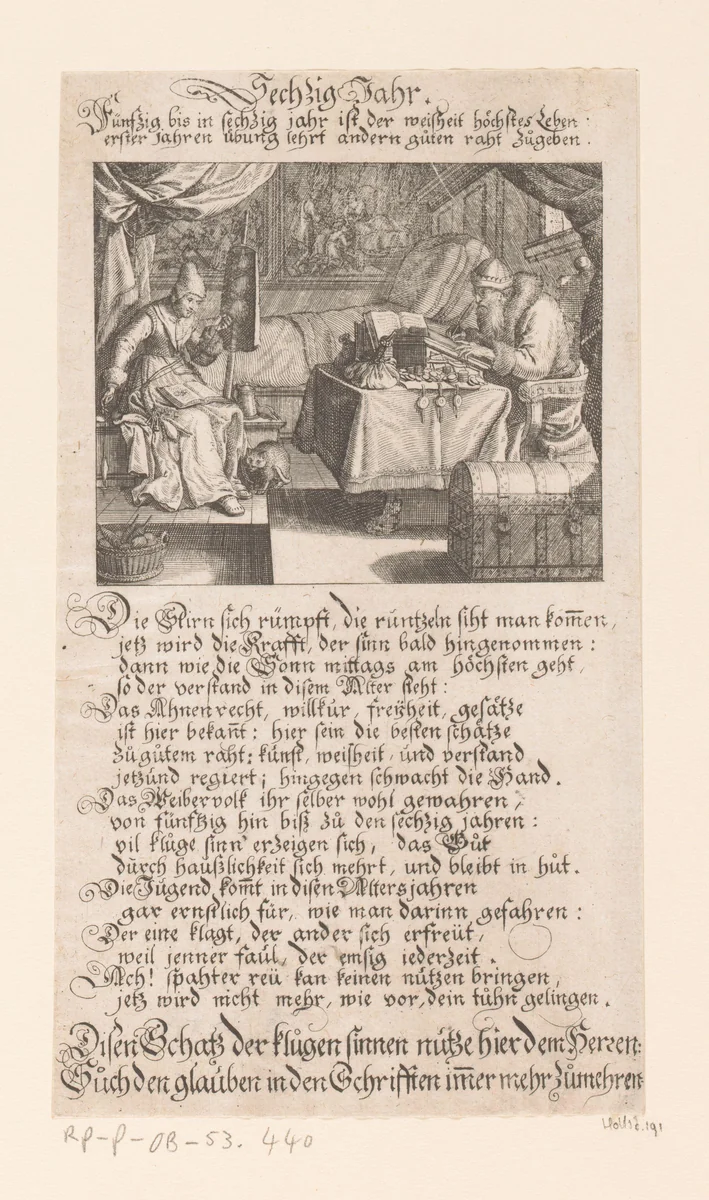 Sechzig Jahr.
Fünfzig bis in sechzig jahr ist der weisheit höchstes Leben:
erster Jahren übung lehrt andern güten raht zügeben.
Die Stirn sich rümpft, die rüntzeln siht man kom̄en,
jetz wird die Krafft, der sinn bald hingenommen:
dann wie die Sonn mittags am höchsten geht,
so der verstand in disem Alter steht:
Das Ahnenrecht, willkür, freÿheit, gesätze
ist hier bekan̄t: hier sein die besten schätze
zügütem raht: künst, weisheit, ünd verstand
jetzünd regiert; hingegen schwacht die Hand.
Das Weibervolk ihr selber wohl gewahren,
von fünffzig hin biß zü den sechzig jahren:
vil klüge sinn' erzeigen sich, das Güt
dürch haüßlichkeit sich mehrt, und bleibt in hüt.
Die Jügend kom̄t in disen Altersjahren
gar ernstlich für, wie man darinn gefahren:
Der eine klagt, der ander sich erfreüt,
weil jenner faül, der emsig iederzeit.
Ach! spahter reü kan keinen nützen bringen,
jetz wird nicht mehr, wie vor, dein tühn gelingen.
Disen Schatz der klügen sinnen nütze hier dem Herren:
Süch den glaüben in den Schrifften im̄er mehr zümehren
RP-P-OB-53.440
Holls. 191